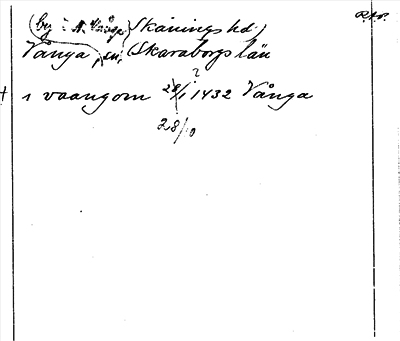 R.A.P.
(by i N. Vånga) Skånings hd.)
Vånga, sn, (Skaraborgs län
+ i vaangom 28/1 ? 1432 Vånga
28/10